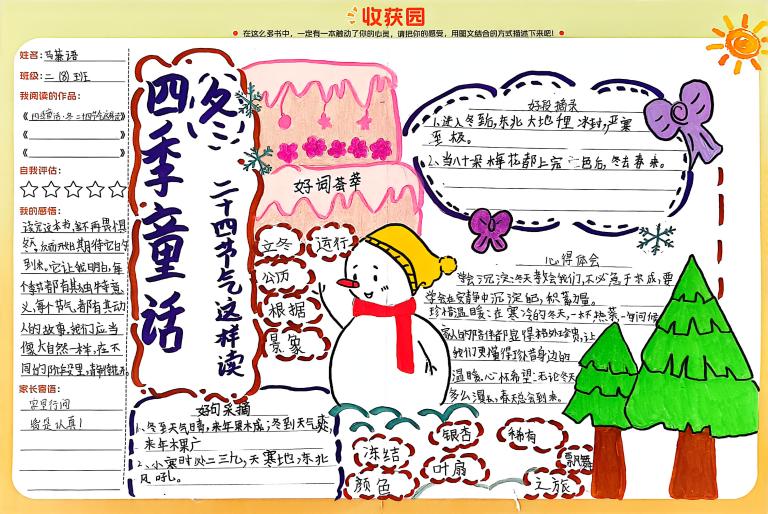 收获园
在这么多书中，一定有一本触动了你的心灵，请把你的感受，用图文结合的方式描述下来吧！
姓名：马慕语
班级：二（8）班
我阅读的作品：
《四季童话·冬 二十四节气这样读》
《 》
《 》
自我评估：
我的感悟：
读完这本书，我不再畏惧
冬天，反而开始期待它的
到来。它让我明白，每
个季节都有其独特意
义，每个节气都有其动
人的故事，我们应当
像大自然一样，在不
同的阶段里，
家长寄语：
字里行间
皆是认真！
四季童话
冬
二十四节气这样读
好词荟萃
立冬 运行
公历
根据
景象
好段摘录
1、进入冬至后，东北大地千里冰封，严寒
至极。
2、当八十一朵梅花都上完色后，冬去春来。
心得体会
学会沉淀：冬天教会我们，不必急于求成，要
学会在安静中沉淀自己，积蓄力量。
珍惜温暖：在寒冷的冬天，一杯热茶、一句问候
家人的陪伴都显得格外珍贵，让
我们更懂得珍惜身边的
温暖。心怀希望：无论冬天
多么漫长，春天总会到来。
好句采摘
1、冬至天气晴，来年果木成；冬到天气爽，
来年木果广
2、小寒时处二三九，天寒地冻北
风吼。
冻结 银杏 稀有
颜色 叶扇 飘舞
之旅